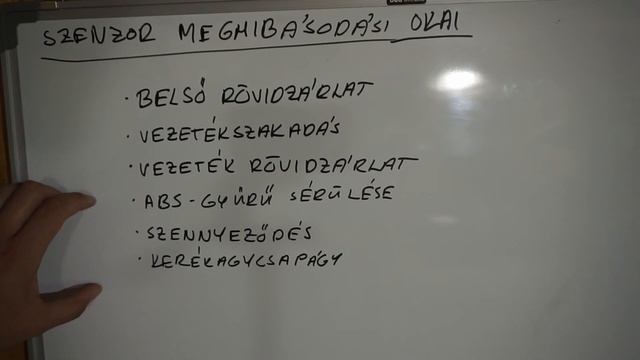 SZENZOR MEGHIBÁSODÁSI OKAI
· BELSŐ RÖVIDZÁRLAT
· VEZETÉKSZAKADÁS
· VEZETÉK RÖVIDZÁRLAT
· ABS-GYŰRŰ SÉRÜLÉSE
· SZENNYEZŐDÉS
· KERÉKAGYCSAPÁGY